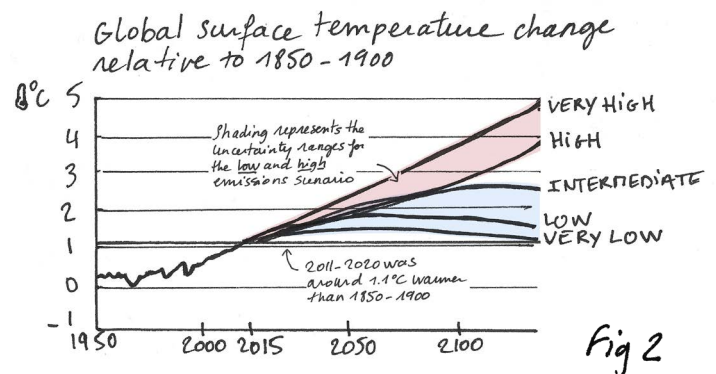 Global surface temperature change
relative to 1850-1900
°C
5
4
3
2
1
0
-1
1950
2000
2015
2050
2100
Shading represents the
uncertainty ranges for
the low and high
emissions scenario
2011-2020 was
around 1.1°C warmer
than 1850-1900
VERY HIGH
HIGH
INTERMEDIATE
LOW
VERY LOW
Fig 2